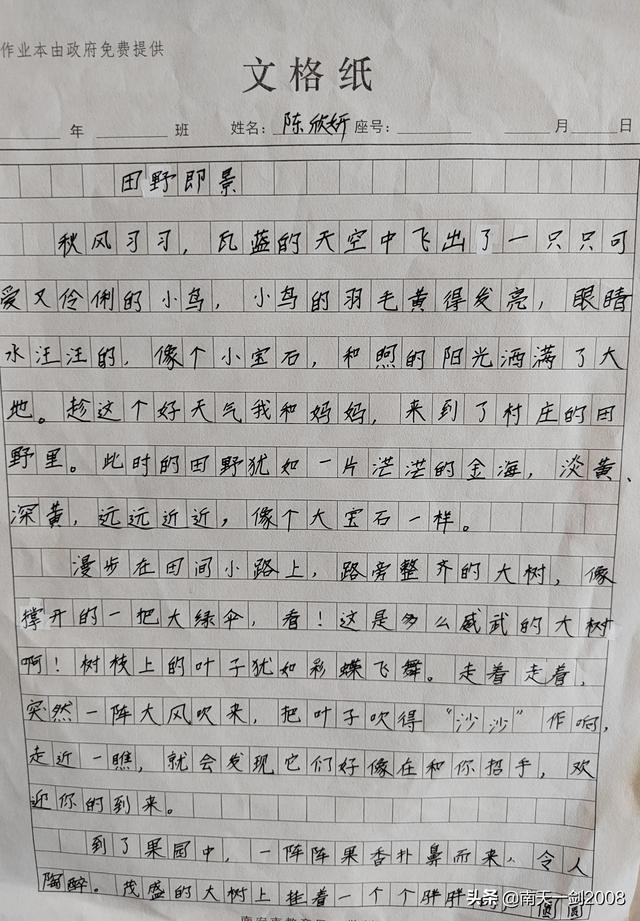 作业本由政府免费提供
文格纸
年 班 姓名: 陈欣妍 座号: 月 日
田野即景
秋风习习，瓦蓝的天空中飞出了一只只可
爱又伶俐的小鸟，小鸟的羽毛黄得发亮，眼睛
水汪汪的，像个小宝石，和煦的阳光洒满了大
地。趁这个好天气我和妈妈，来到了村庄的田
野里。此时的田野犹如一片茫茫的金海，淡黄、
深黄，远远近近，像个大宝石一样。
漫步在田间小路上，路旁整齐的大树，像
撑开的一把大绿伞，看！这是多么威武的大树
啊！树枝上的叶子犹如彩蝶飞舞。走着走着，
突然一阵大风吹来，把叶子吹得“沙沙”作响，
走近一瞧，就会发现它们好像在和你招手，欢
迎你的到来。
到了果园中，一阵阵果香扑鼻而来，令人
陶醉。茂盛的大树上挂着一个个胖胖
头条 @南天一剑2008